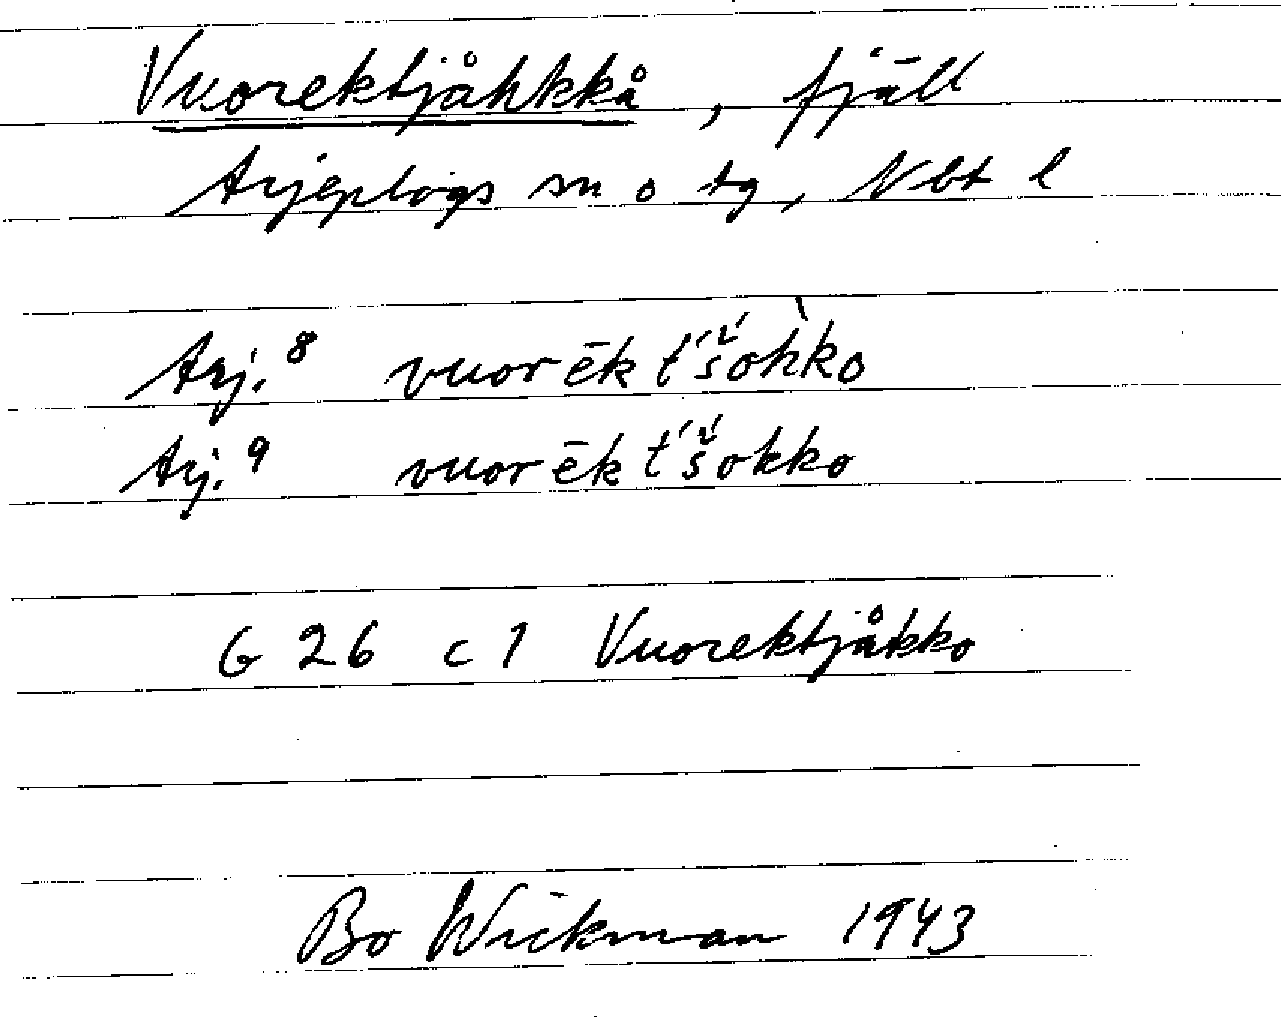 Vuorektjåhkkå, fjäll
Arjeplogs sn o tg, Nbt l
Arj.⁸ vuorēkt́š́oh̀ko
Arj.⁹ vuorēkt́š́okko
G 26 c 1 Vuorektjåkko
Bo Wickman 1943